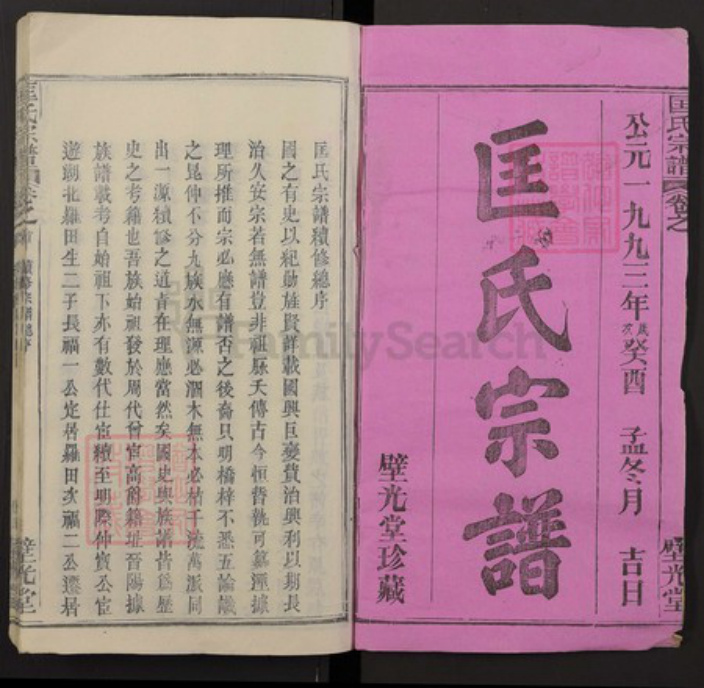 匡氏宗譜 卷之
璧光堂
公元一九九三年歲次癸酉 孟冬月 吉日
匡氏宗譜
璧光堂珍藏
匡氏宗譜續修總序
國之有史以紀勳旌賢詳載國興巨變費治興利以期長
治久安宗若無譜豈非祖脉夭傳古今恒替孰可纂溼據
理所推而宗必應有譜否之後裔只明橋梓不悉五倫讖
之昆仲不分九族水無源必涸木無本必枯千流萬派同
出一源續修之道青在理應當然矣國史與族譜皆為歷
史之考籍也吾族始祖發於周代曾官高爵籍址晉陽據
族譜載考自始祖下亦有數代仕宦續至明際仲寶公宦
遊湖北羅田生二子長福一公定居羅田次福二公遷居
匡氏宗譜 卷之首
續修宗譜總序
璧光堂
FamilySearch